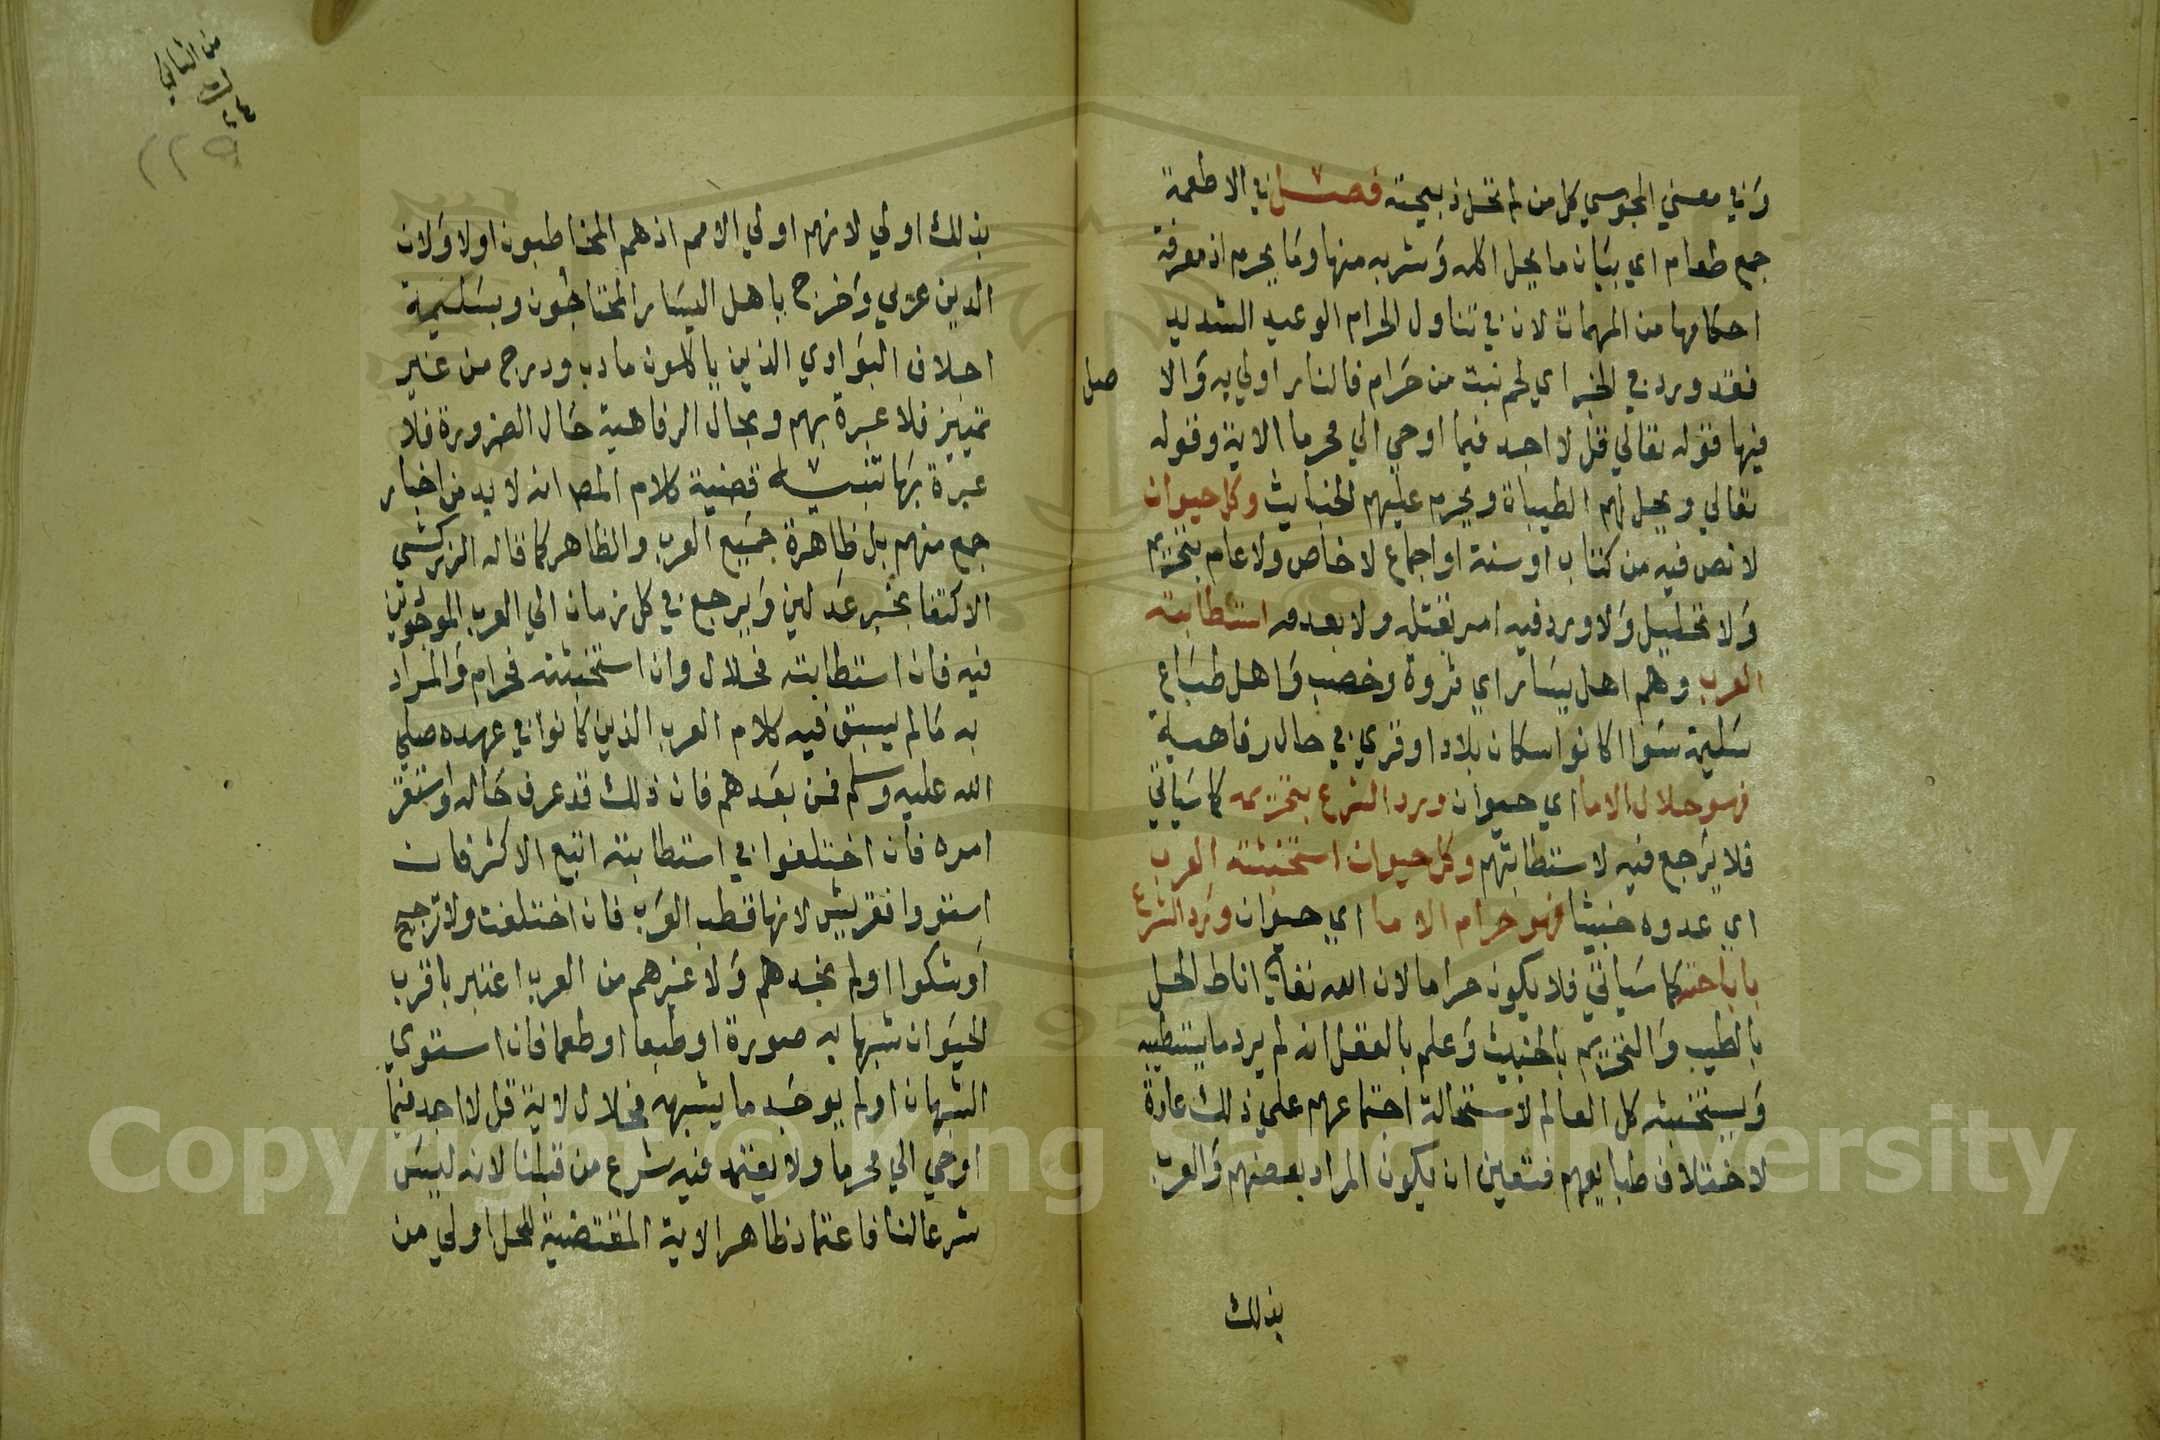 وفي معني المجوسي كل من لم تحل ذبيحته فصل في الاطعمة
جمع طعام اي بيان ما يحل اكله وشربه منها وما يحرم اذ معرفة
احكامها من المهمات لان في تناول الحرام الوعيد الشديد
فقد ورد في الخبر اي لحم نبت من حرام فالنار اولي به والا
صل
فيها قوله تعالي قل لا اجد فيما اوحي الي محرما الاية وقوله
تعالي ويحل لهم الطيباة ويحرم عليهم الخبايث وكل حيوان
لا نص فيه من كتاب او سنة او اجماع لا خاص ولا عام بتحريم
ولا تحليل ولا ورد فيه امر بقتله ولا بعدمه استطابته
العرب وهم اهل يسار اي ثروة وخصب واهل طباع
سليمة سوا كانوا سكان بلاد او قري في حال رفاهية
فهو حلال الا ما اي حيوان ورد الشرع بتحريمه كما سياتي
فلا يرجع فيه لاستطابتهم وكل حيوان استخبثته العرب
اي عدوه خبيثا فهو حرام الا ما اي حيوان ورد الشرع
باباحته كما سياتي فلا يكون حراما لان الله تعالي اناط الحل
بالطيب والتحريم بالخبيث وعلم بالعقل انه لم يرد ما يستطيبه
ويستخبثه كل العالم لاستحالة اجتماعهم علي ذلك عادة
لاختلاف طبايعهم فتعين ان يكون المراد بعضهم والعرب
بذلك
من الثاني
٢٤
٢٢٩
بذلك اولي لانهم اولي الامم اذ هم المخاطبون اولا ولان
الدين عربي وخرج باهل اليسار المحتاجون وبسليمة
اجلاف البوادي الذين ياكلون ما دب ودرج من غير
تمييز فلا عبرة بهم وبحال الرفاهية حال الضرورة فلا
عبرة بها تنبيه قضية كلام المصـ انه لا بد من اخبار
جمع منهم بل ظاهرة جميع العرب والظاهر كما قاله الزركشي
الاكتفا بخبر عدلين ويرجع في كل زمان الي العرب الموجودين
فيه فان استطابته فحلال وان استخبثته فحرام والمراد
به ما لم يسبق فيه كلام العرب الذين كانوا في عهده صلي
الله عليه وسلم فمن بعدهم فان ذلك قد عرف حاله واستقر
امره فان اختلفوا في استطابته اتبع الاكثر فان
استووا فقريش لانها قطب العرب فان اختلفت ولا ترجيح
او شكوا او لم نجدهم ولا غيرهم من العرب اعتبر باقرب
الحيوان شبها به صورة او طبعا او طعما فان استوي
الشبهان او لم يوجد ما يشبهه فحلال لاية قل لا اجد فيما
اوحي الي محرما ولا يعتمد فيه شرع من قبلنا لانه ليس
شرعا لنا فاعتماد ظاهر الاية المقتضية للحل اولي من
Copyright © King Saud University